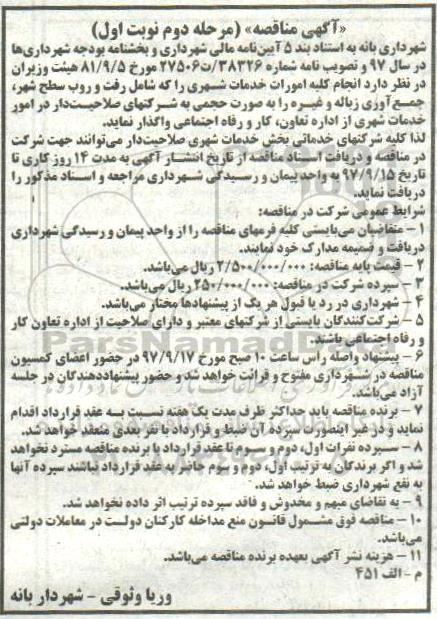 «آگهی مناقصه» (مرحله دوم نوبت اول)
شهرداری بانه به استناد بند ۵ آیین‌نامه مالی شهرداری و بخشنامه بودجه شهرداری‌ها
در سال ۹۷ و تصویب نامه شماره ۳۸۳۲۶/ت۲۷۵۰۶ مورخ ۸۱/۹/۵ هیئت وزیران
در نظر دارد انجام کلیه امورات خدمات شهری را که شامل رفت و روب سطح شهر،
جمع‌آوری زباله و غیره را به صورت حجمی به شرکتهای صلاحیت‌دار در امور
خدمات شهری از اداره تعاون، کار و رفاه اجتماعی واگذار نماید.
لذا کلیه شرکتهای خدماتی بخش خدمات شهری صلاحیت‌دار می‌توانند جهت شرکت
در مناقصه و دریافت اسناد مناقصه از تاریخ انتشار آگهی به مدت ۱۴ روز کاری تا
تاریخ ۹۷/۹/۱۵ به واحد پیمان و رسیدگی شهرداری مراجعه و اسناد مذکور را
دریافت نماید.
شرایط عمومی شرکت در مناقصه:
۱ - متقاضیان می‌بایستی کلیه فرمهای مناقصه را از واحد پیمان و رسیدگی شهرداری
دریافت و ضمیمه مدارک خود نمایند.
۲ - قیمت پایه مناقصه: ۲/۵۰۰/۰۰۰/۰۰۰ ریال می‌باشد.
۳ - سپرده شرکت در مناقصه: ۲۵۰/۰۰۰/۰۰۰ ریال می‌باشد.
۴ - شهرداری در رد یا قبول هر یک از پیشنهادها مختار می‌باشد.
۵ - شرکت‌کنندگان بایستی از شرکتهای معتبر و دارای صلاحیت از اداره تعاون کار
و رفاه اجتماعی باشند.
۶ - پیشنهاد واصله راس ساعت ۱۰ صبح مورخ ۹۷/۹/۱۷ در حضور اعضای کمسیون
مناقصه در شهرداری مفتوح و قرائت خواهد شد و حضور پیشنهاددهندگان در جلسه
آزاد می‌باشد.
۷ - برنده مناقصه باید حداکثر ظرف مدت یک هفته نسبت به عقد قرارداد اقدام
نماید و در غیر اینصورت سپرده آن ضبط و قرارداد با نفر بعدی منعقد خواهد شد.
۸ - سپرده نفرات اول، دوم و سوم تا عقد قرارداد با برنده مناقصه مسترد نخواهد
شد و اگر برندگان به ترتیب اول، دوم و سوم حاضر به عقد قرارداد نباشند سپرده آنها
به نفع شهرداری ضبط خواهد شد.
۹ - به تقاضای مبهم و مخدوش و فاقد سپرده ترتیب اثر داده نخواهد شد.
۱۰ - مناقصه فوق مشمول قانون منع مداخله کارکنان دولت در معاملات دولتی
می‌باشد.
۱۱ - هزینه نشر آگهی بعهده برنده مناقصه می‌باشد.
م - الف ۴۵۱
وریا وثوقی - شهردار بانه